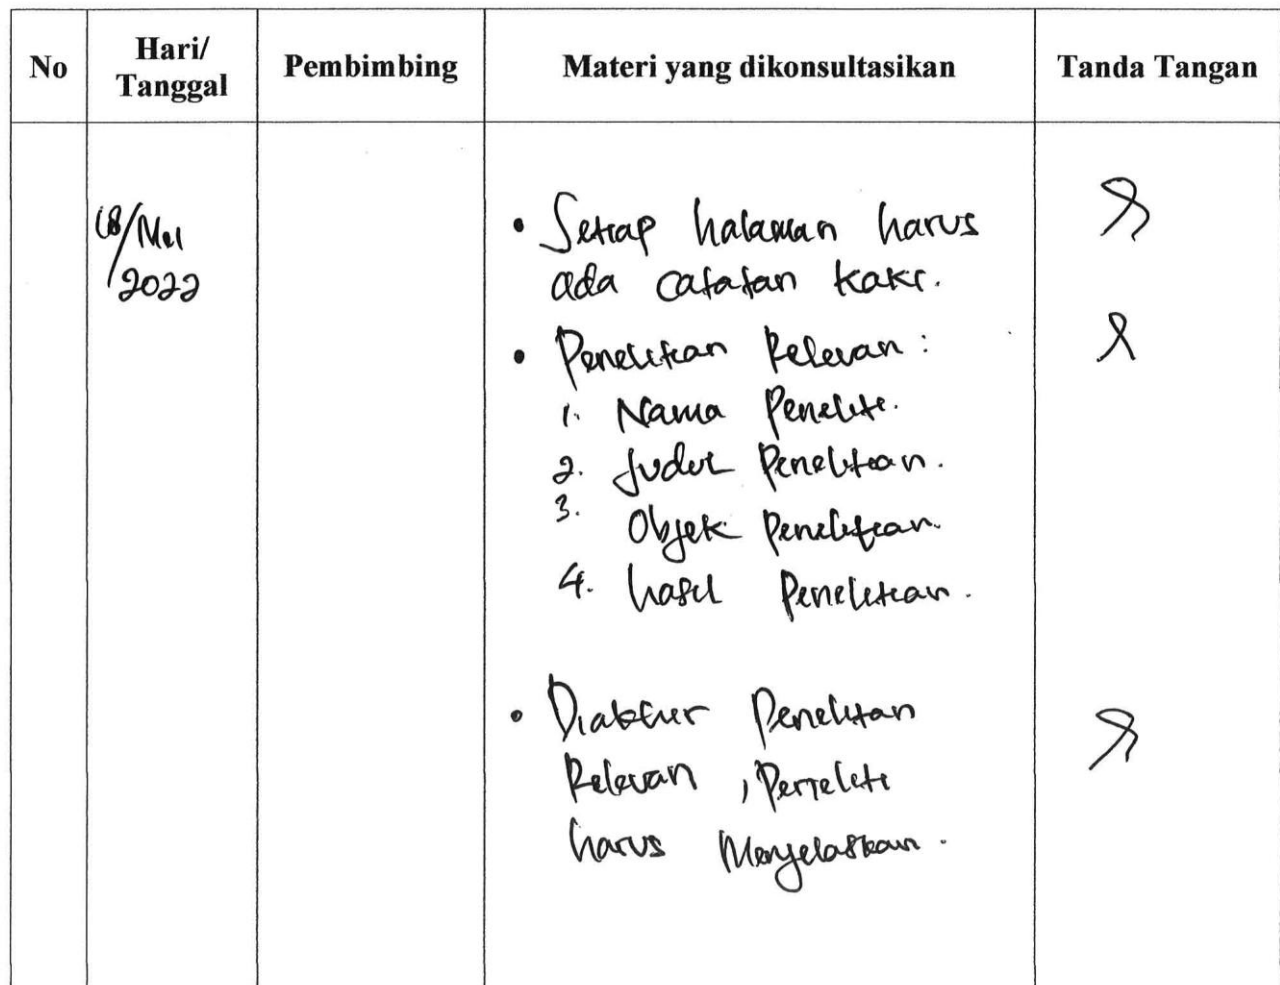 No
Hari/
Tanggal
Pembimbing
Materi yang dikonsultasikan
Tanda Tangan
18/Mei
/2022
• Setiap halaman harus
ada catatan kaki.
• Penelitian Relevan :
1. Nama Peneliti.
2. Judul Penelitian.
3. Objek Penelitian.
4. hasil Penelitian.
• Diakhir Penelitian
Relevan, Peneliti
harus Menjelaskan.